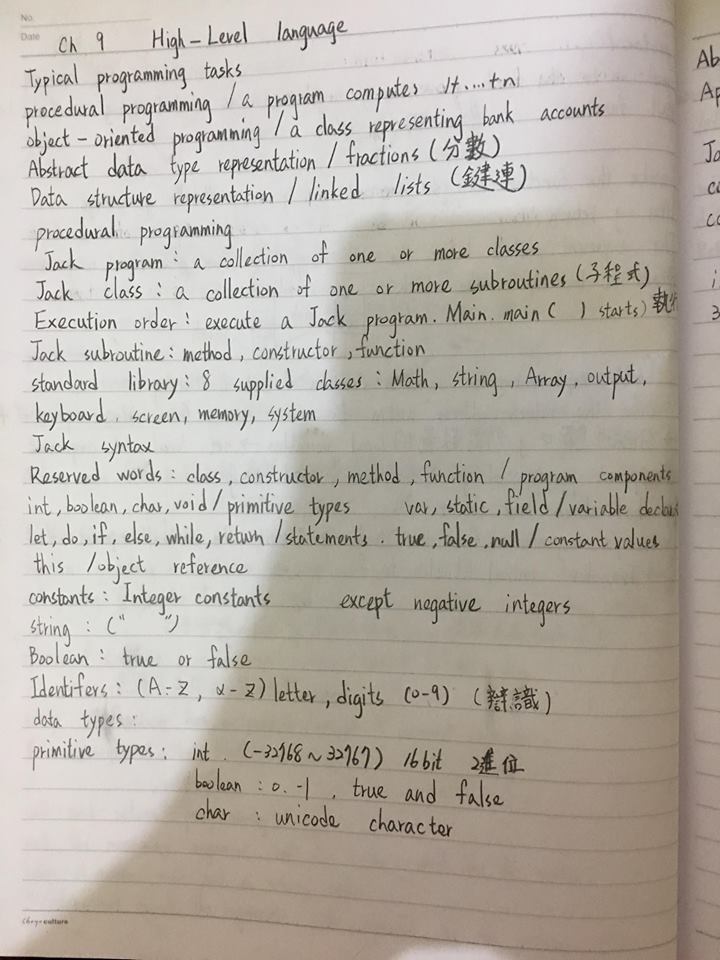 No.
Date
Ch 9 High-Level language
Typical programming tasks
procedural programming / a program computes 1+...+n
object-oriented programming / a class representing bank accounts
Abstract data type representation / fractions (分數)
Data structure representation / linked lists (鏈連)
procedural programming
Jack program: a collection of one or more classes
Jack class: a collection of one or more subroutines (子程式)
Execution order: execute a Jack program. Main.main( ) starts) 執行
Jack subroutine: method, constructor, function
standard library: 8 supplied classes: Math, string, Array, output,
keyboard. screen, memory, system
Jack syntax
Reserved words: class, constructor, method, function / program components
int, boolean, char, void / primitive types var, static, field / variable
let, do, if, else, while, return / statements. true, false, null / constant values
this /object reference
constants: Integer constants except negative integers
string: (" ")
Boolean: true or false
Identifers: (A-Z, a-z) letter, digits (0-9) (辯識)
data types:
primitive types: int. (-32768~32767) 16bit 2進位
boolean: 0. -1. true and false
char: unicode character
Ab
Ap
Ja
co
co
i
3